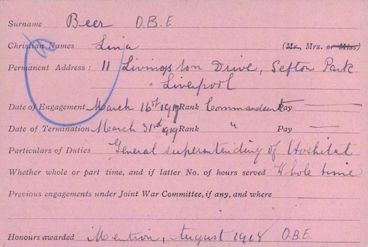 Surname Beer O.B.E
Christian Names Lina (Mr., Mrs. or Miss)
Permanent Address: 11 Livingston Drive, Sefton Park
Liverpool
Date of Engagement March 16st 1917 Rank Commandant Pay —
Date of Termination March 31st 1919 Rank " Pay —
Particulars of Duties General superintending of Hospital
Whether whole or part time, and if latter No. of hours served Whole time
Previous engagements under Joint War Committee, if any, and where
Honours awarded Mention, August 1918 O.B.E.